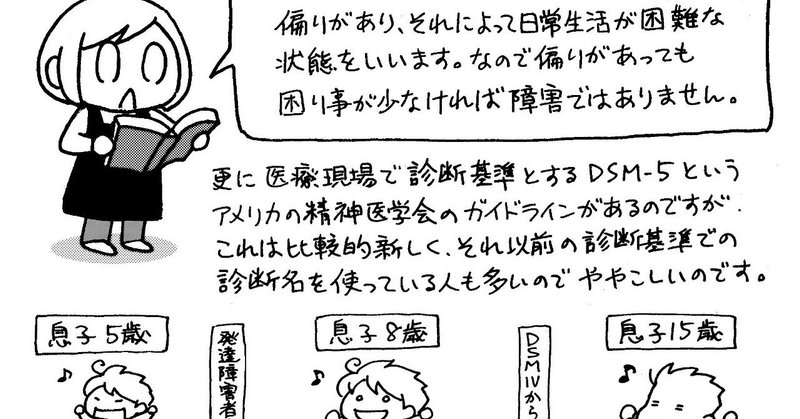 偏りがあり、それによって日常生活が困難な
状態をいいます。なので偏りがあっても
困り事が少なければ障害ではありません。
更に医療現場で診断基準とするDSM-5という
アメリカの精神医学会のガイドラインがあるのですが、
これは比較的新しく、それ以前の診断基準での
診断名を使っている人も多いのでややこしいのです。
息子5歳
発達障害者
息子8歳
DSMⅣから
息子15歳